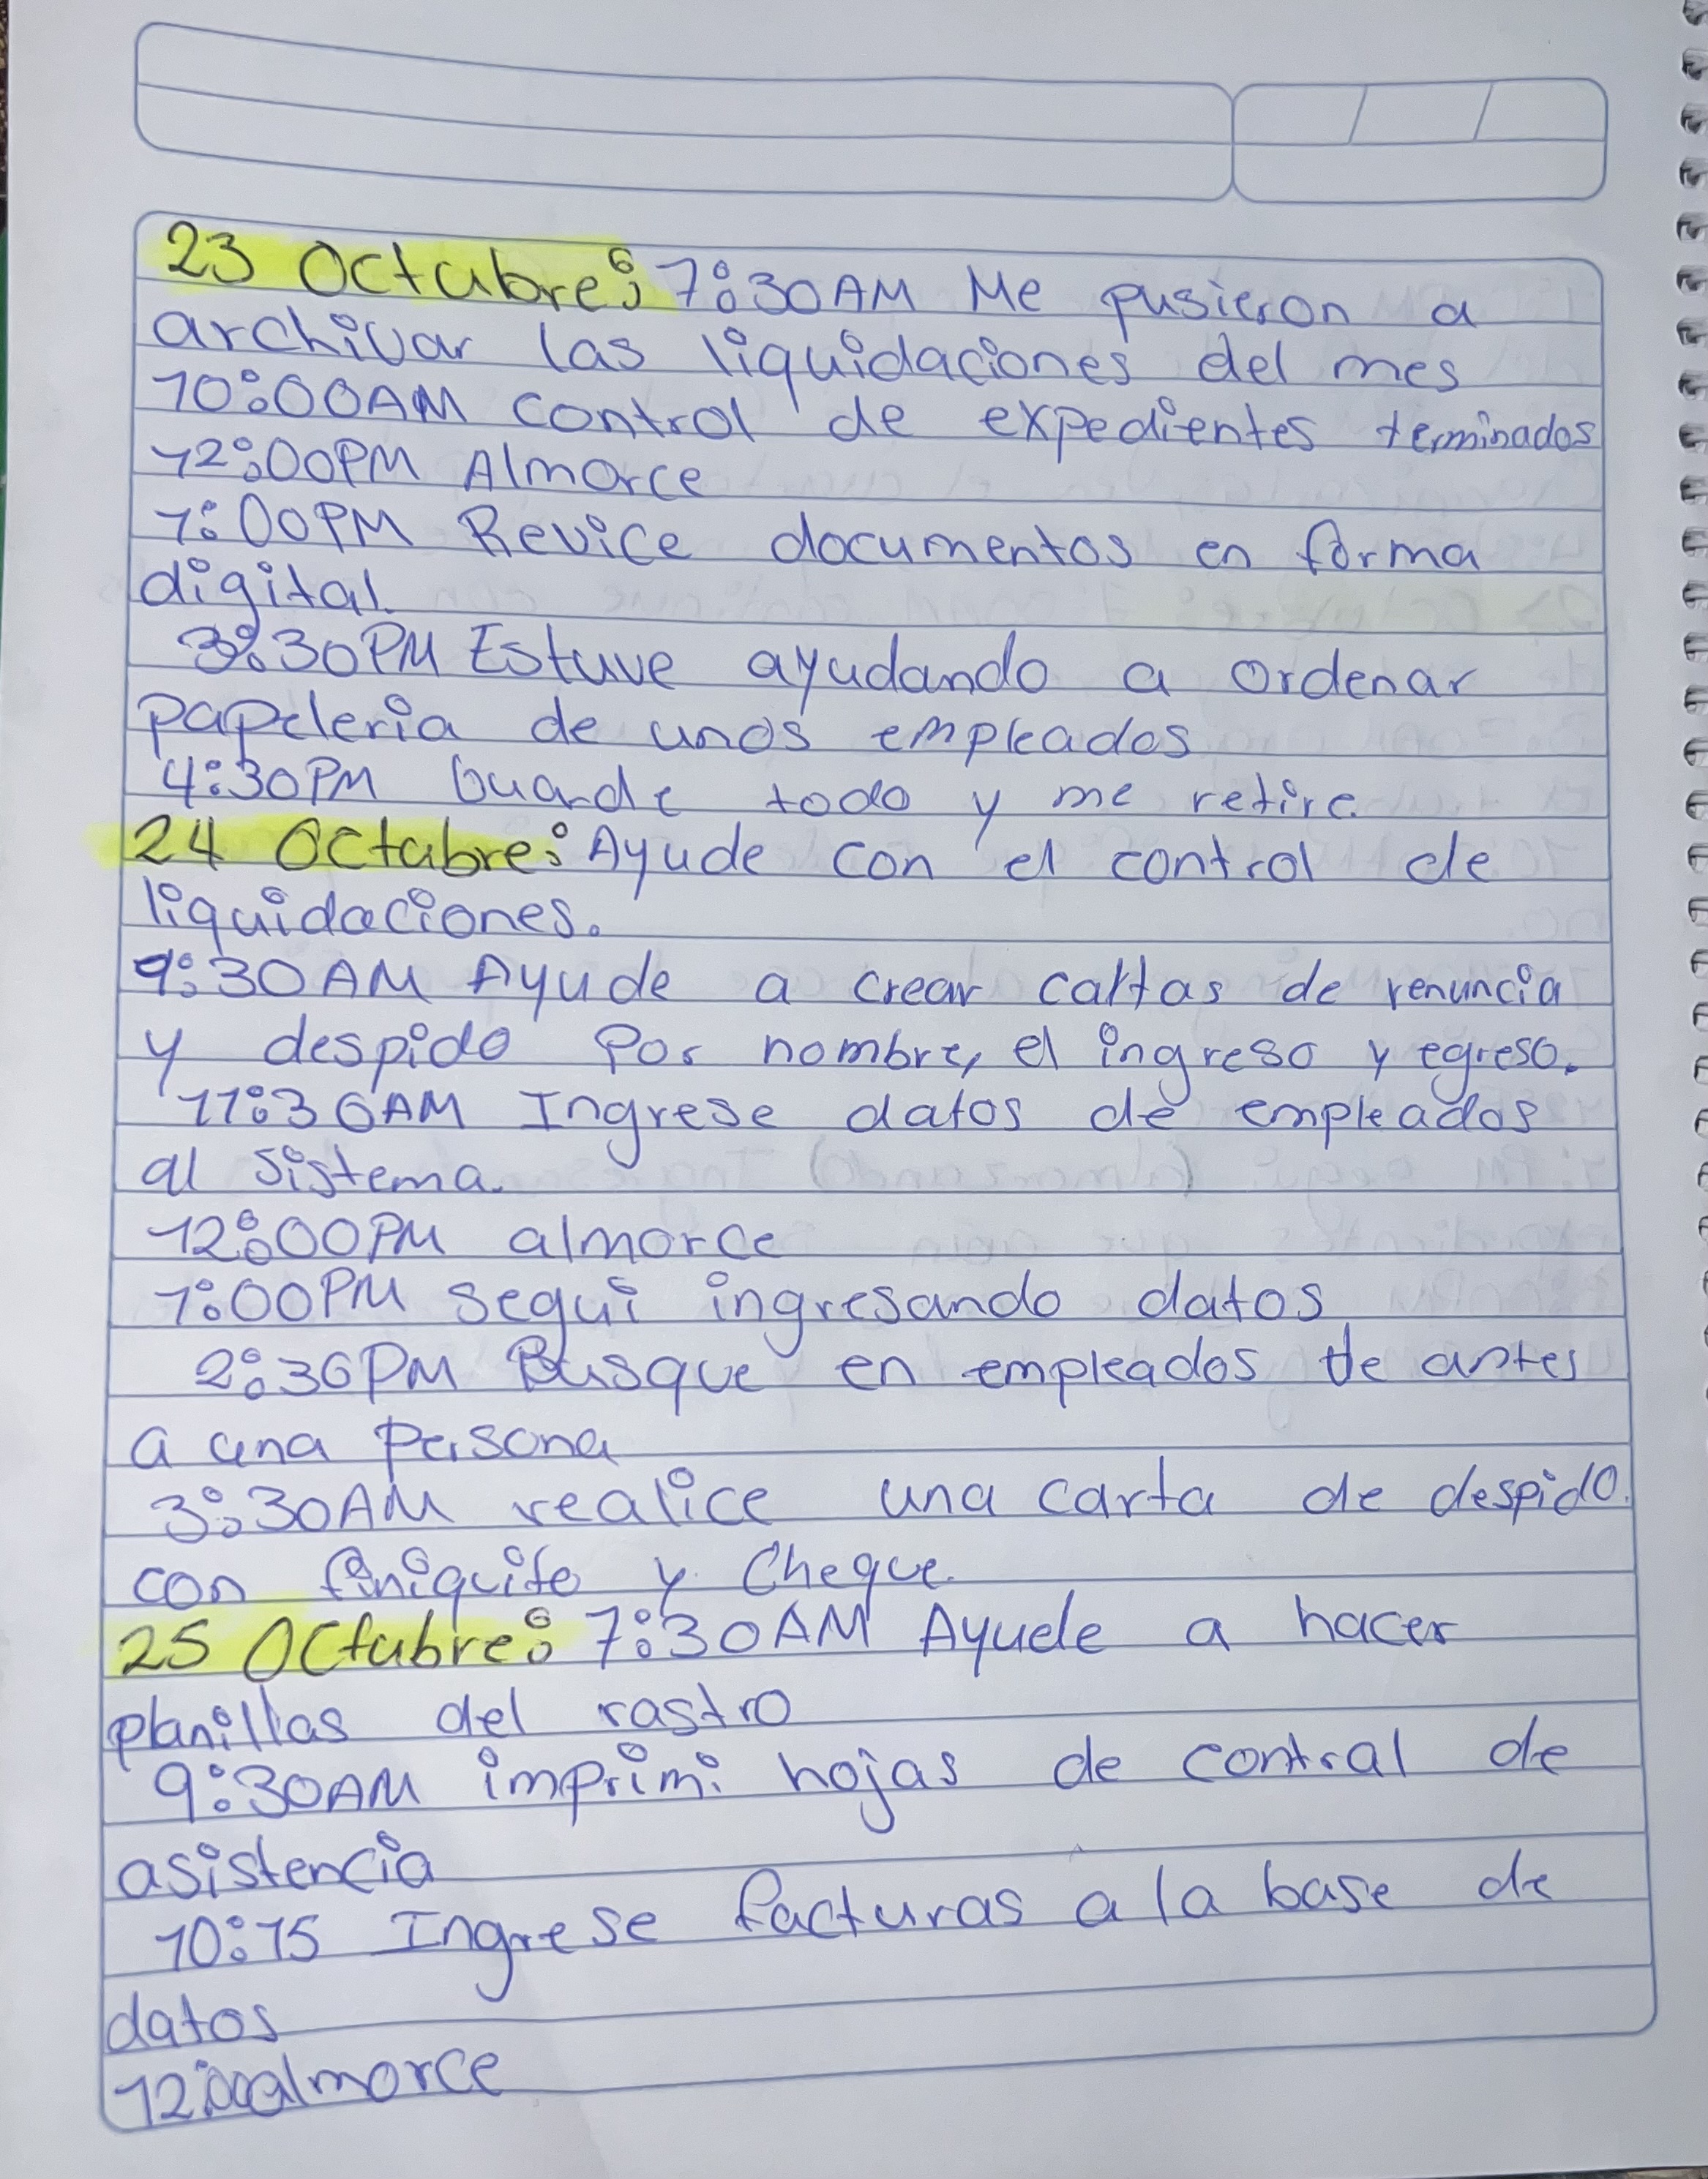 23 Octubre: 7:30AM Me pusieron a
archivar las liquidaciones del mes
10:00AM control de expedientes terminados
12:00PM Almorce
1:00PM Revice documentos en forma
digital.
3:30PM Estuve ayudando a ordenar
papeleria de unos empleados
4:30PM Guarde todo y me retire.
24 Octubre: Ayude con el control de
liquidaciones.
9:30AM Ayude a crear cartas de renuncia
y despido Por nombre, el ingreso y egreso.
11:30AM Ingrese datos de empleados
al sistema.
12:00PM almorce
1:00PM segui ingresando datos
2:30PM Busque en empleados de antes
a una persona
3:30AM realice una carta de despido.
con finiquito y Cheque.
25 Octubre: 7:30AM Ayude a hacer
planillas del rastro
9:30AM imprimi hojas de control de
asistencia
10:15 Ingrese facturas a la base de
datos
12:00almorce